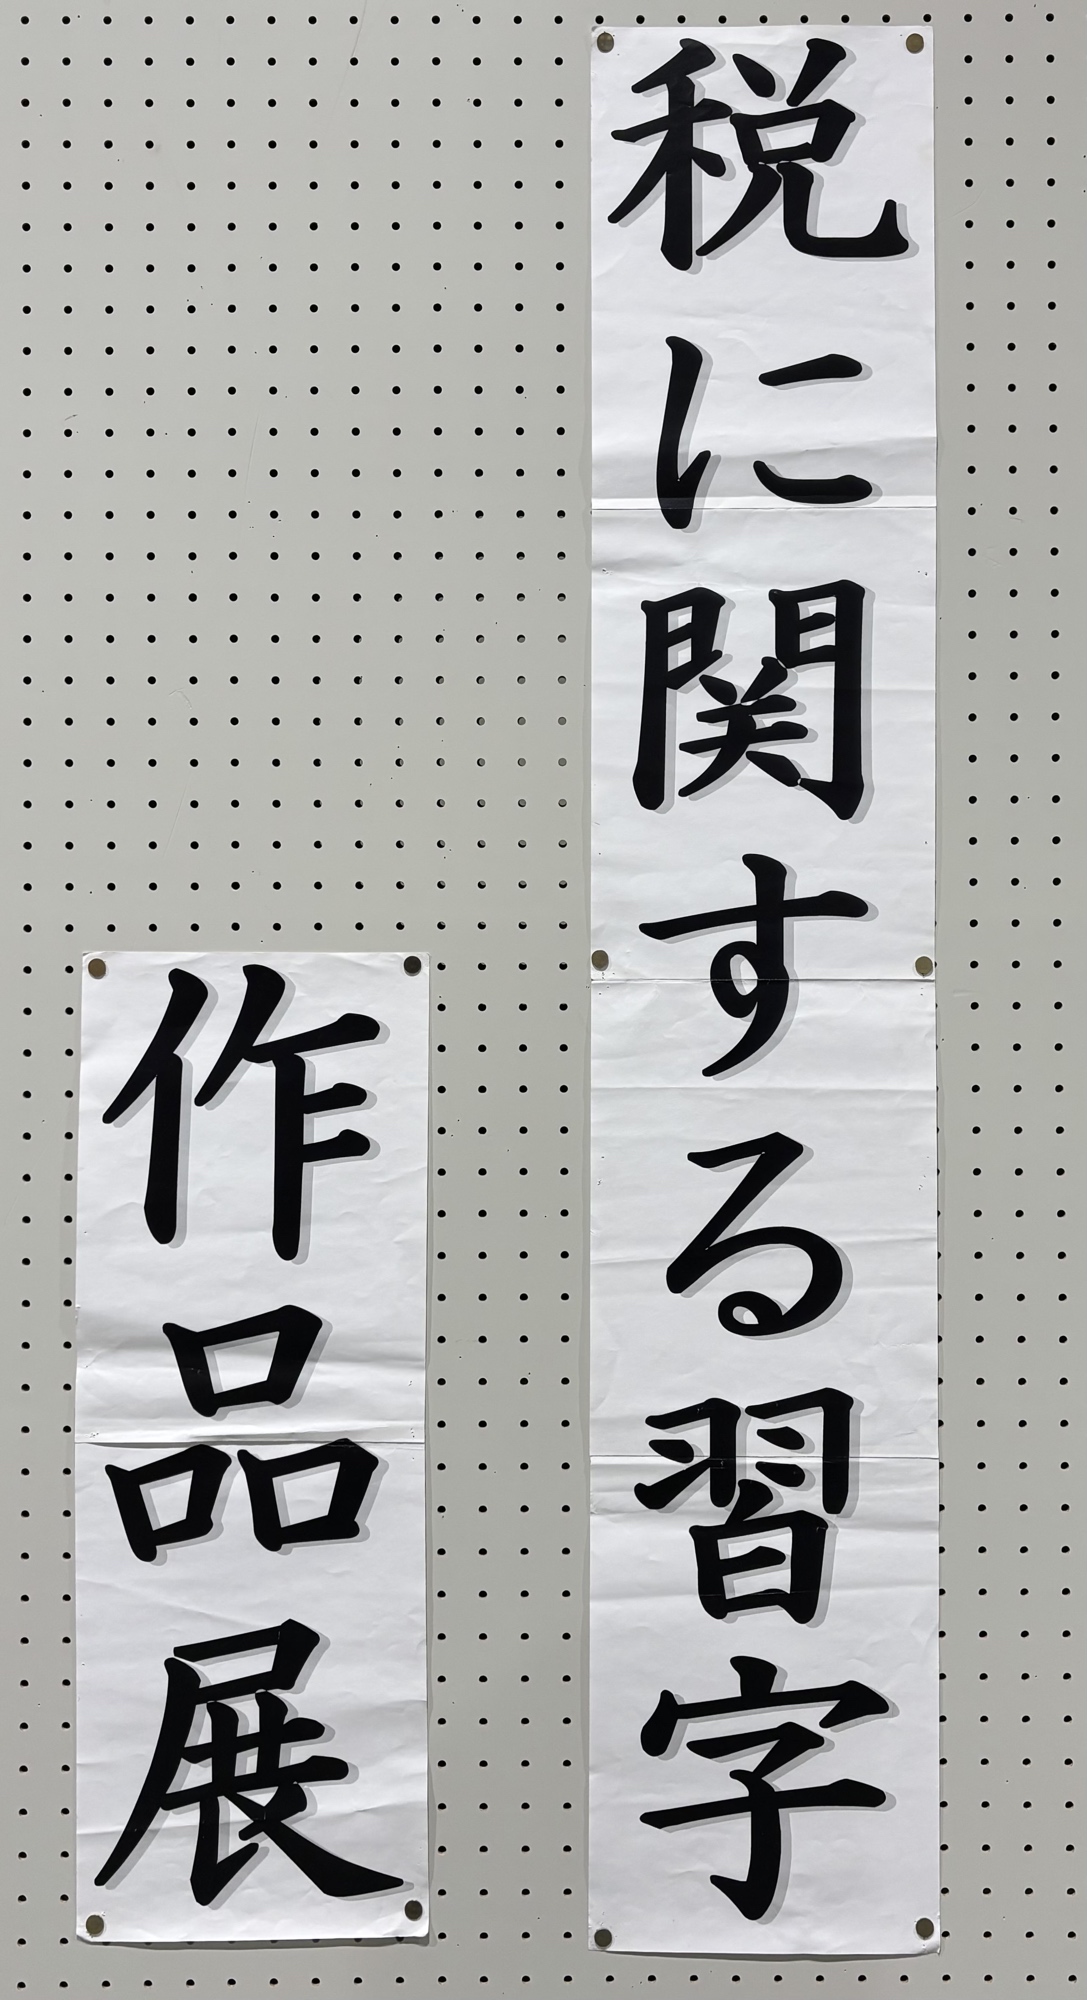 税に関する習字
作品展